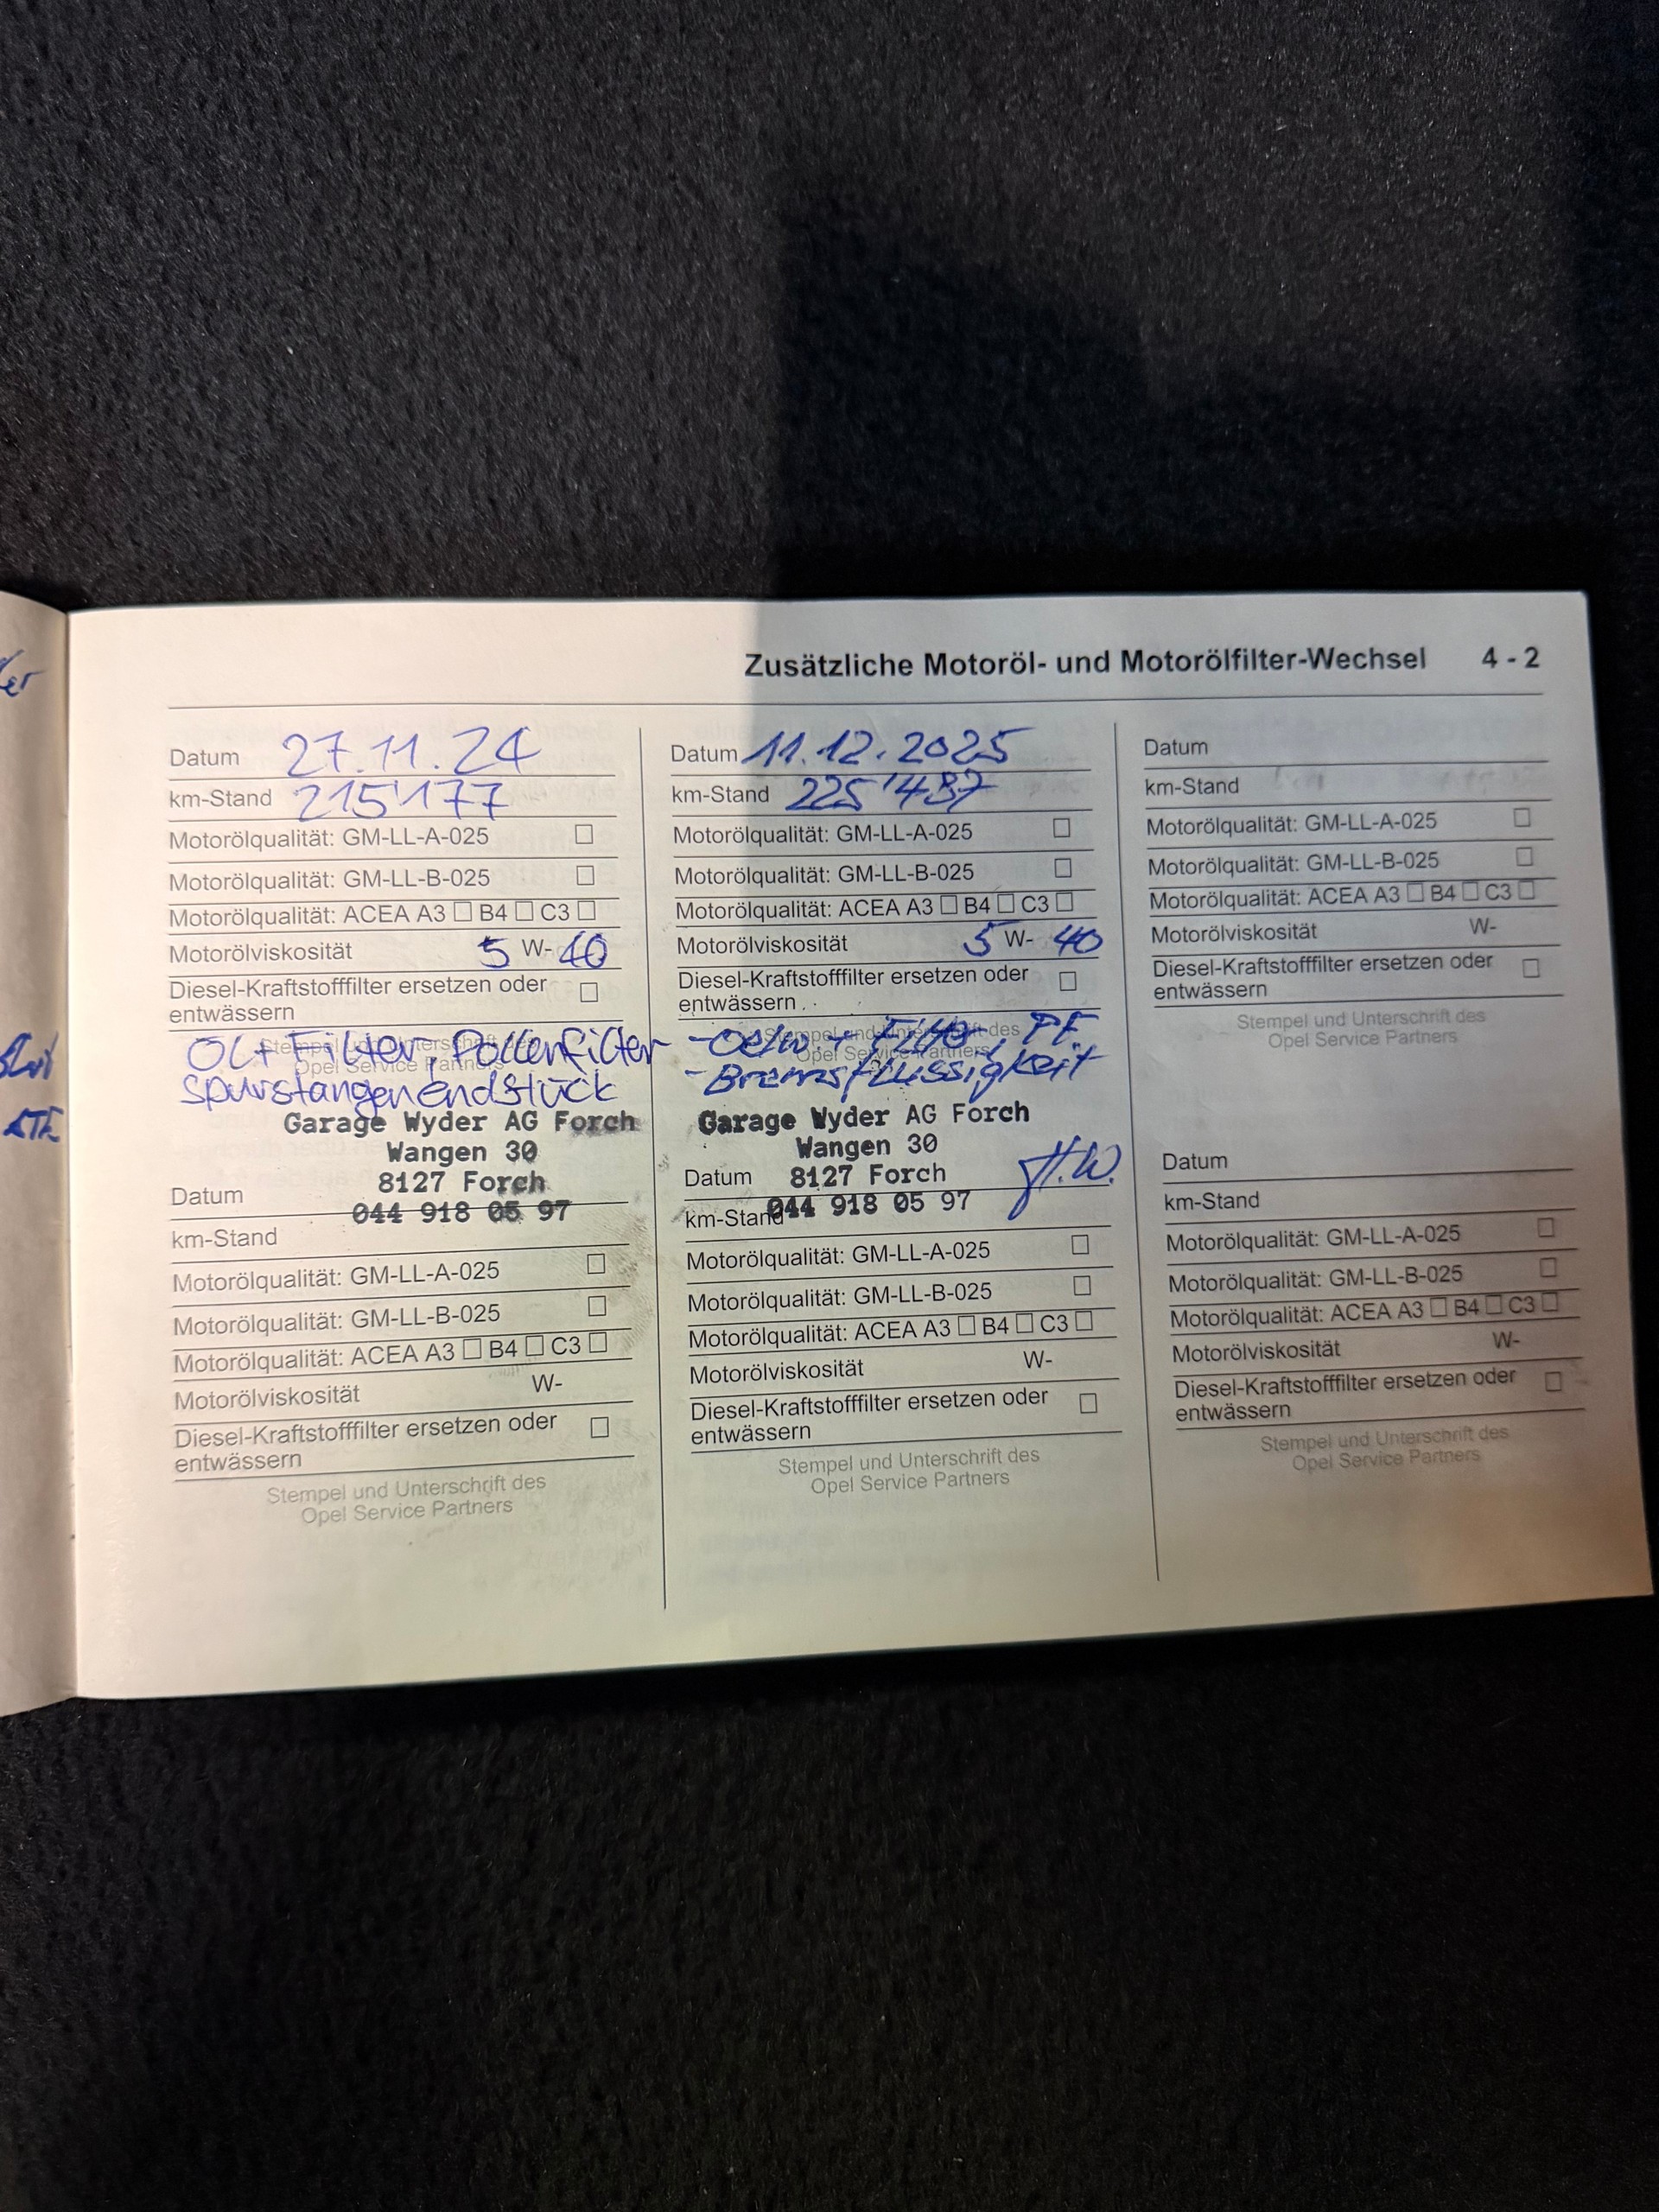 Zusätzliche Motoröl- und Motorölfilter-Wechsel 4 - 2
Datum 27.11.24
km-Stand 215'177
Motorölqualität: GM-LL-A-025 ☐
Motorölqualität: GM-LL-B-025 ☐
Motorölqualität: ACEA A3 ☐ B4 ☐ C3 ☐
Motorölviskosität 5 W- 40
Diesel-Kraftstofffilter ersetzen oder ☐
entwässern
Stempel und Unterschrift des
Opel Service Partners
ÖL + Filter, Pollenfilter
Spurstangenendstück
Garage Wyder AG Forch
Wangen 30
8127 Forch
044 918 05 97
Datum
km-Stand
Motorölqualität: GM-LL-A-025 ☐
Motorölqualität: GM-LL-B-025 ☐
Motorölqualität: ACEA A3 ☐ B4 ☐ C3 ☐
Motorölviskosität W-
Diesel-Kraftstofffilter ersetzen oder ☐
entwässern
Stempel und Unterschrift des
Opel Service Partners
Datum 11.12.2025
km-Stand 225'437
Motorölqualität: GM-LL-A-025 ☐
Motorölqualität: GM-LL-B-025 ☐
Motorölqualität: ACEA A3 ☐ B4 ☐ C3 ☐
Motorölviskosität 5 W- 40
Diesel-Kraftstofffilter ersetzen oder ☐
entwässern
Stempel und Unterschrift des
Opel Service Partners
- Oelw. + Filter, PF
- Bremsflüssigkeit
Garage Wyder AG Forch
Wangen 30
8127 Forch
044 918 05 97
H.W.
Datum
km-Stand
Motorölqualität: GM-LL-A-025 ☐
Motorölqualität: GM-LL-B-025 ☐
Motorölqualität: ACEA A3 ☐ B4 ☐ C3 ☐
Motorölviskosität W-
Diesel-Kraftstofffilter ersetzen oder ☐
entwässern
Stempel und Unterschrift des
Opel Service Partners
Datum
km-Stand
Motorölqualität: GM-LL-A-025 ☐
Motorölqualität: GM-LL-B-025 ☐
Motorölqualität: ACEA A3 ☐ B4 ☐ C3 ☐
Motorölviskosität W-
Diesel-Kraftstofffilter ersetzen oder ☐
entwässern
Stempel und Unterschrift des
Opel Service Partners
Datum
km-Stand
Motorölqualität: GM-LL-A-025 ☐
Motorölqualität: GM-LL-B-025 ☐
Motorölqualität: ACEA A3 ☐ B4 ☐ C3 ☐
Motorölviskosität W-
Diesel-Kraftstofffilter ersetzen oder ☐
entwässern
Stempel und Unterschrift des
Opel Service Partners